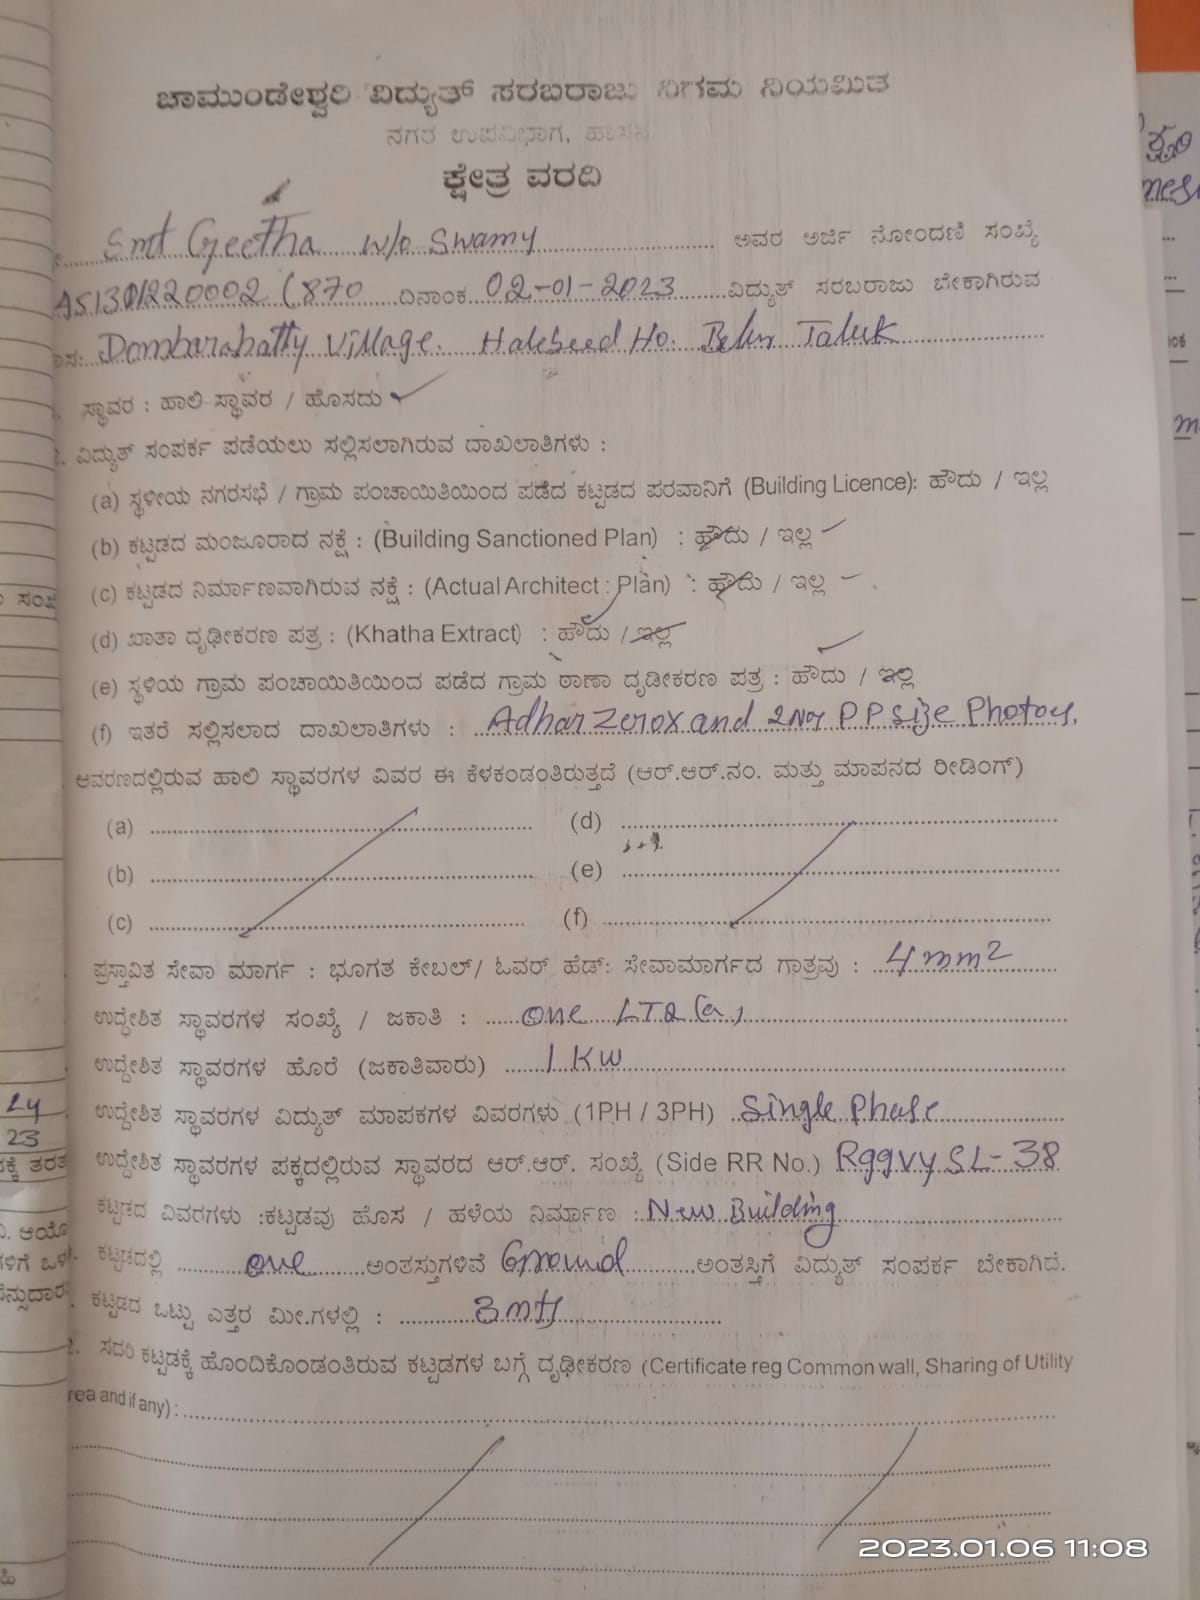 ಚಾಮುಂಡೇಶ್ವರಿ ವಿದ್ಯುತ್ ಸರಬರಾಜು ನಿಗಮ ನಿಯಮಿತ
ನಗರ ಉಪವಿಭಾಗ, ಹಾಸನ
ಕ್ಷೇತ್ರ ವರದಿ
Smt Geetha w/o Swamy ಅವರ ಅರ್ಜಿ ನೋಂದಣಿ ಸಂಖ್ಯೆ
ದಿನಾಂಕ 02-01-2023 ವಿದ್ಯುತ್ ಸರಬರಾಜು ಬೇಕಾಗಿರುವ
Dombarahatty Village. Halebeed Ho. Belur Taluk
ಸ್ಥಾವರ : ಹಾಲಿ ಸ್ಥಾವರ / ಹೊಸದು
2. ವಿದ್ಯುತ್ ಸಂಪರ್ಕ ಪಡೆಯಲು ಸಲ್ಲಿಸಲಾಗಿರುವ ದಾಖಲಾತಿಗಳು :
(a) ಸ್ಥಳೀಯ ನಗರಸಭೆ / ಗ್ರಾಮ ಪಂಚಾಯಿತಿಯಿಂದ ಪಡೆದ ಕಟ್ಟಡದ ಪರವಾನಿಗೆ (Building Licence): ಹೌದು / ಇಲ್ಲ
(b) ಕಟ್ಟಡದ ಮಂಜೂರಾದ ನಕ್ಷೆ : (Building Sanctioned Plan) : ಹೌದು / ಇಲ್ಲ
(c) ಕಟ್ಟಡದ ನಿರ್ಮಾಣವಾಗಿರುವ ನಕ್ಷೆ : (Actual Architect : Plan) : ಹೌದು / ಇಲ್ಲ
(d) ಖಾತಾ ದೃಢೀಕರಣ ಪತ್ರ : (Khatha Extract) : ಹೌದು / ಇಲ್ಲ
(e) ಸ್ಥಳಿಯ ಗ್ರಾಮ ಪಂಚಾಯಿತಿಯಿಂದ ಪಡೆದ ಗ್ರಾಮ ಠಾಣಾ ದೃಡೀಕರಣ ಪತ್ರ : ಹೌದು / ಇಲ್ಲ
(f) ಇತರೆ ಸಲ್ಲಿಸಲಾದ ದಾಖಲಾತಿಗಳು : Adhar Zerox and 2Nos P P Size Photos.
ಆವರಣದಲ್ಲಿರುವ ಹಾಲಿ ಸ್ಥಾವರಗಳ ವಿವರ ಈ ಕೆಳಕಂಡಂತಿರುತ್ತದೆ (ಆರ್.ಆರ್.ನಂ. ಮತ್ತು ಮಾಪನದ ರೀಡಿಂಗ್)
(a) (d)
(b) (e)
(c) (f)
ಪ್ರಸ್ತಾವಿತ ಸೇವಾ ಮಾರ್ಗ : ಭೂಗತ ಕೇಬಲ್/ ಓವರ್ ಹೆಡ್: ಸೇವಾಮಾರ್ಗದ ಗಾತ್ರವು : 4mm2
ಉದ್ದೇಶಿತ ಸ್ಥಾವರಗಳ ಸಂಖ್ಯೆ / ಜಕಾತಿ : one LT2(a)
ಉದ್ದೇಶಿತ ಸ್ಥಾವರಗಳ ಹೊರೆ (ಜಕಾತಿವಾರು) 1 KW
ಉದ್ದೇಶಿತ ಸ್ಥಾವರಗಳ ವಿದ್ಯುತ್ ಮಾಪಕಗಳ ವಿವರಗಳು (1PH / 3PH) Single Phase
ಉದ್ದೇಶಿತ ಸ್ಥಾವರಗಳ ಪಕ್ಕದಲ್ಲಿರುವ ಸ್ಥಾವರದ ಆರ್.ಆರ್. ಸಂಖ್ಯೆ (Side RR No.) RggVy SL-38
ಕಟ್ಟಡದ ವಿವರಗಳು :ಕಟ್ಟಡವು ಹೊಸ / ಹಳೆಯ ನಿರ್ಮಾಣ : New Building
ಕಟ್ಟಡದಲ್ಲಿ one ಅಂತಸ್ತುಗಳಿವೆ Ground ಅಂತಸ್ತಿಗೆ ವಿದ್ಯುತ್ ಸಂಪರ್ಕ ಬೇಕಾಗಿದೆ.
ಕಟ್ಟಡದ ಒಟ್ಟು ಎತ್ತರ ಮೀ.ಗಳಲ್ಲಿ :
2. ಸದರಿ ಕಟ್ಟಡಕ್ಕೆ ಹೊಂದಿಕೊಂಡಂತಿರುವ ಕಟ್ಟಡಗಳ ಬಗ್ಗೆ ದೃಢೀಕರಣ (Certificate reg Common wall, Sharing of Utility
rea and if any) :
2023.01.06 11:08